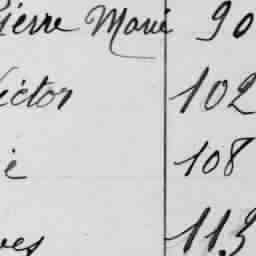 Pierre Marie 90
Victor 102
ie 108
ves 113